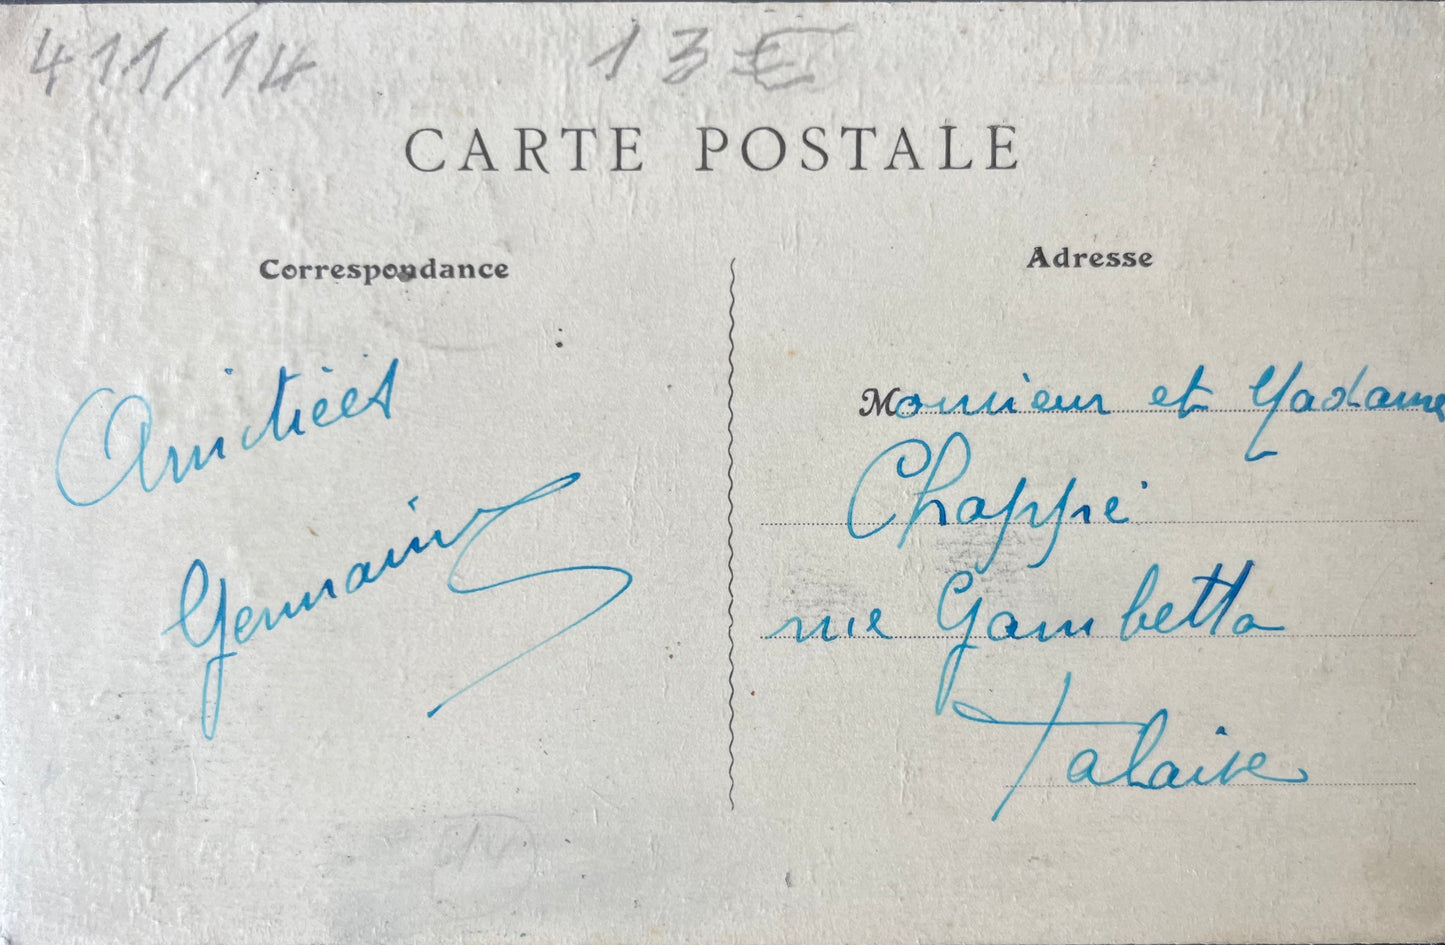 411/14
13€
CARTE POSTALE
Correspondance
Adresse
Amitiées
Germain
Monsieur et Madame
Chappé
rue Gambetta
Falaise